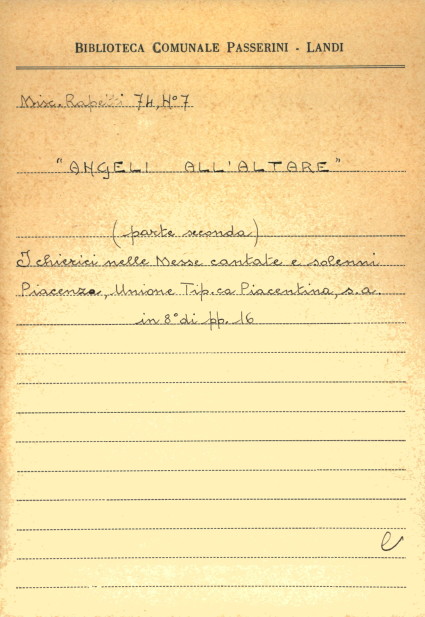 BIBLIOTECA COMUNALE PASSERINI - LANDI
Misc. Rapetti 74, N° 7
"ANGELI ALL'ALTARE"
(parte seconda)
I chierici nelle Messe cantate e solenni
Piacenza, Unione Tip.ca Piacentina, s.a.
in 8° di pp. 16
e